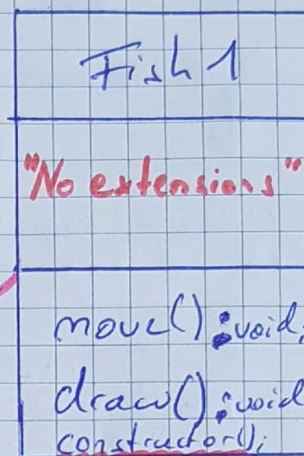 Fish 1
"No extensions"
move() : void;
draw() : void
constructor();